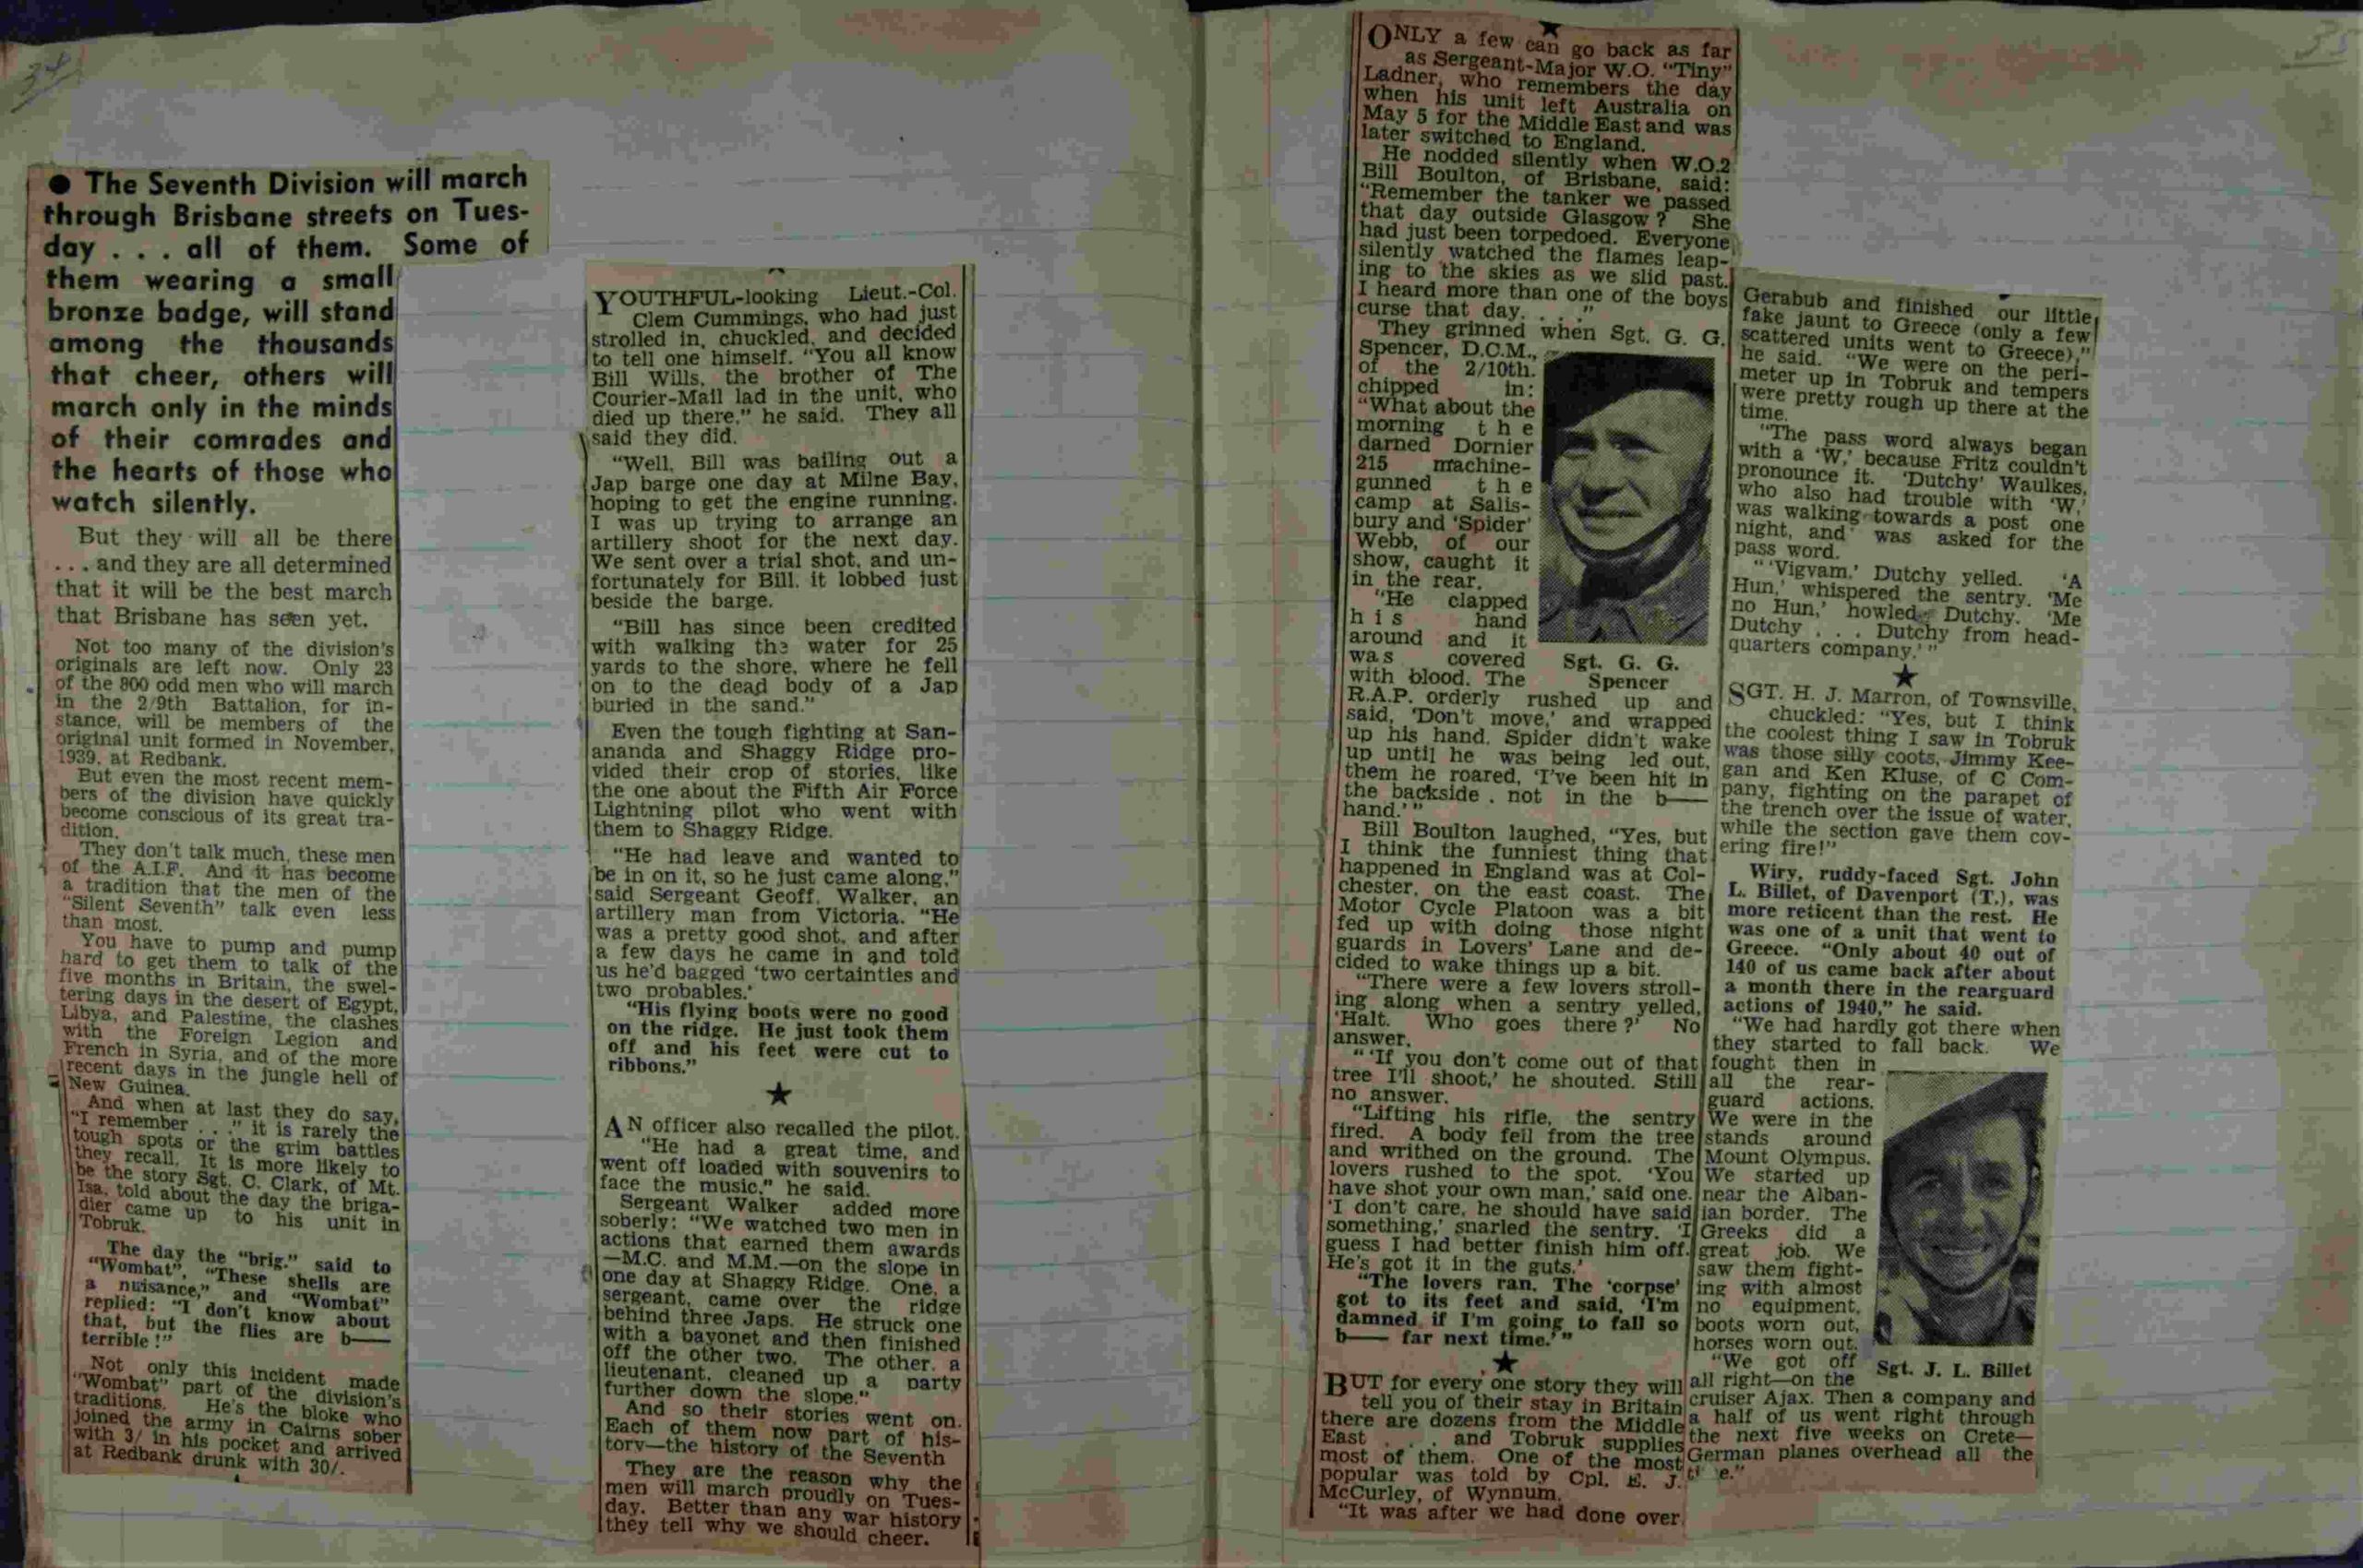 34
● The Seventh Division will march
through Brisbane streets on Tues-
day . . . all of them. Some of
them wearing a small
bronze badge, will stand
among the thousands
that cheer, others will
march only in the minds
of their comrades and
the hearts of those who
watch silently.
But they will all be there
. . . and they are all determined
that it will be the best march
that Brisbane has seen yet.
Not too many of the division's
originals are left now. Only 23
of the 800 odd men who will march
in the 2/9th Battalion, for in-
stance, will be members of the
original unit formed in November,
1939, at Redbank.
But even the most recent mem-
bers of the division have quickly
become conscious of its great tra-
dition.
They don't talk much, these men
of the A.I.F. And it has become
a tradition that the men of the
"Silent Seventh" talk even less
than most.
You have to pump and pump
hard to get them to talk of the
five months in Britain, the swel-
tering days in the desert of Egypt,
Libya, and Palestine, the clashes
with the Foreign Legion and
French in Syria, and of the more
recent days in the jungle hell of
New Guinea.
And when at last they do say,
"I remember . . ." it is rarely the
tough spots or the grim battles
they recall. It is more likely to
be the story Sgt. C. Clark, of Mt.
Isa, told about the day the briga-
dier came up to his unit in
Tobruk.
The day the "brig." said to
"Wombat", "These shells are
a nuisance," and "Wombat"
replied: "I don't know about
that, but the flies are b——
terrible!"
Not only this incident made
"Wombat" part of the division's
traditions. He's the bloke who
joined the army in Cairns sober
with 3/ in his pocket and arrived
at Redbank drunk with 30/.
YOUTHFUL-looking Lieut.-Col.
Clem Cummings, who had just
strolled in, chuckled, and decided
to tell one himself. "You all know
Bill Wills, the brother of The
Courier-Mail lad in the unit, who
died up there," he said. They all
said they did.
"Well, Bill was bailing out a
Jap barge one day at Milne Bay,
hoping to get the engine running.
I was up trying to arrange an
artillery shoot for the next day.
We sent over a trial shot, and un-
fortunately for Bill, it lobbed just
beside the barge.
"Bill has since been credited
with walking the water for 25
yards to the shore, where he fell
on to the dead body of a Jap
buried in the sand."
Even the tough fighting at San-
ananda and Shaggy Ridge pro-
vided their crop of stories, like
the one about the Fifth Air Force
Lightning pilot who went with
them to Shaggy Ridge.
"He had leave and wanted to
be in on it, so he just came along,"
said Sergeant Geoff. Walker, an
artillery man from Victoria. "He
was a pretty good shot, and after
a few days he came in and told
us he'd bagged 'two certainties and
two probables.'
"His flying boots were no good
on the ridge. He just took them
off and his feet were cut to
ribbons."
★
AN officer also recalled the pilot.
"He had a great time, and
went off loaded with souvenirs to
face the music," he said.
Sergeant Walker added more
soberly: "We watched two men in
actions that earned them awards
—M.C. and M.M.—on the slope in
one day at Shaggy Ridge. One, a
sergeant, came over the ridge
behind three Japs. He struck one
with a bayonet and then finished
off the other two. The other, a
lieutenant, cleaned up a party
further down the slope."
And so their stories went on.
Each of them now part of his-
tory—the history of the Seventh
They are the reason why the
men will march proudly on Tues-
day. Better than any war history
they tell why we should cheer.
35
★
ONLY a few can go back as far
as Sergeant-Major W.O. "Tiny"
Ladner, who remembers the day
when his unit left Australia on
May 5 for the Middle East and was
later switched to England.
He nodded silently when W.O.2
Bill Boulton, of Brisbane, said:
"Remember the tanker we passed
that day outside Glasgow? She
had just been torpedoed. Everyone
silently watched the flames leap-
ing to the skies as we slid past.
I heard more than one of the boys
curse that day. . . ."
They grinned when Sgt. G. G.
Spencer, D.C.M.,
of the 2/10th.
chipped in:
"What about the
morning the
darned Dornier
215 machine-
gunned the
camp at Salis-
bury and 'Spider'
Webb, of our
show, caught it
in the rear.
"He clapped
his hand
around and it
was covered
with blood. The
R.A.P. orderly rushed up and
said, 'Don't move,' and wrapped
up his hand. Spider didn't wake
up until he was being led out,
them he roared, 'I've been hit in
the backside . not in the b——
hand.'"
Sgt. G. G.
Spencer
Bill Boulton laughed, "Yes, but
I think the funniest thing that
happened in England was at Col-
chester, on the east coast. The
Motor Cycle Platoon was a bit
fed up with doing those night
guards in Lovers' Lane and de-
cided to wake things up a bit.
"There were a few lovers stroll-
ing along when a sentry yelled,
'Halt. Who goes there?' No
answer.
"'If you don't come out of that
tree I'll shoot,' he shouted. Still
no answer.
"Lifting his rifle, the sentry
fired. A body fell from the tree
and writhed on the ground. The
lovers rushed to the spot. 'You
have shot your own man,' said one.
'I don't care, he should have said
something,' snarled the sentry. 'I
guess I had better finish him off.
He's got it in the guts.'
"The lovers ran. The 'corpse'
got to its feet and said, 'I'm
damned if I'm going to fall so
b—— far next time.'"
★
BUT for every one story they will
tell you of their stay in Britain
there are dozens from the Middle
East . . . and Tobruk supplies
most of them. One of the most
popular was told by Cpl. E. J.
McCurley, of Wynnum.
"It was after we had done over
Gerabub and finished our little
fake jaunt to Greece (only a few
scattered units went to Greece),"
he said. "We were on the peri-
meter up in Tobruk and tempers
were pretty rough up there at the
time.
"The pass word always began
with a 'W,' because Fritz couldn't
pronounce it. 'Dutchy' Waulkes,
who also had trouble with 'W,'
was walking towards a post one
night, and was asked for the
pass word.
"'Vigvam,' Dutchy yelled. 'A
Hun,' whispered the sentry. 'Me
no Hun,' howled Dutchy. 'Me
Dutchy . . . Dutchy from head-
quarters company.'"
★
SGT. H. J. Marron, of Townsville,
chuckled: "Yes, but I think
the coolest thing I saw in Tobruk
was those silly coots, Jimmy Kee-
gan and Ken Kluse, of C Com-
pany, fighting on the parapet of
the trench over the issue of water,
while the section gave them cov-
ering fire!"
Wiry, ruddy-faced Sgt. John
L. Billet, of Davenport (T.), was
more reticent than the rest. He
was one of a unit that went to
Greece. "Only about 40 out of
140 of us came back after about
a month there in the rearguard
actions of 1940," he said.
"We had hardly got there when
they started to fall back. We
fought then in
all the rear-
guard actions.
We were in the
stands around
Mount Olympus.
We started up
near the Alban-
ian border. The
Greeks did a
great job. We
saw them fight-
ing with almost
no equipment,
boots worn out,
horses worn out.
"We got off
all right—on the
cruiser Ajax. Then a company and
a half of us went right through
the next five weeks on Crete—
German planes overhead all the
Sgt. J. L. Billet